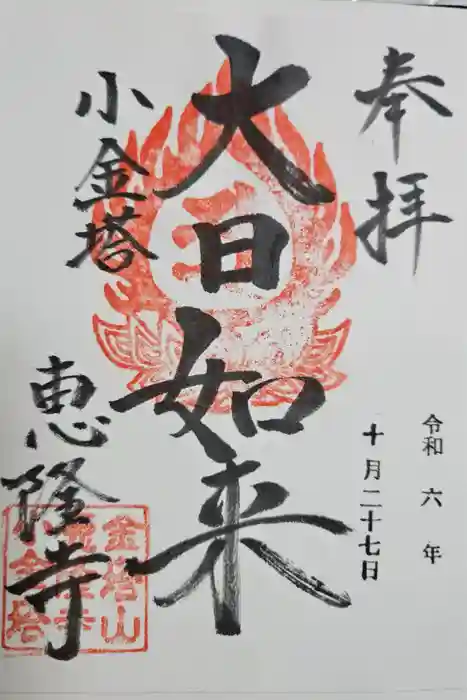 奉拝
令和六年
十月二十七日
大日如来
小金塔
恵隆寺
金塔山